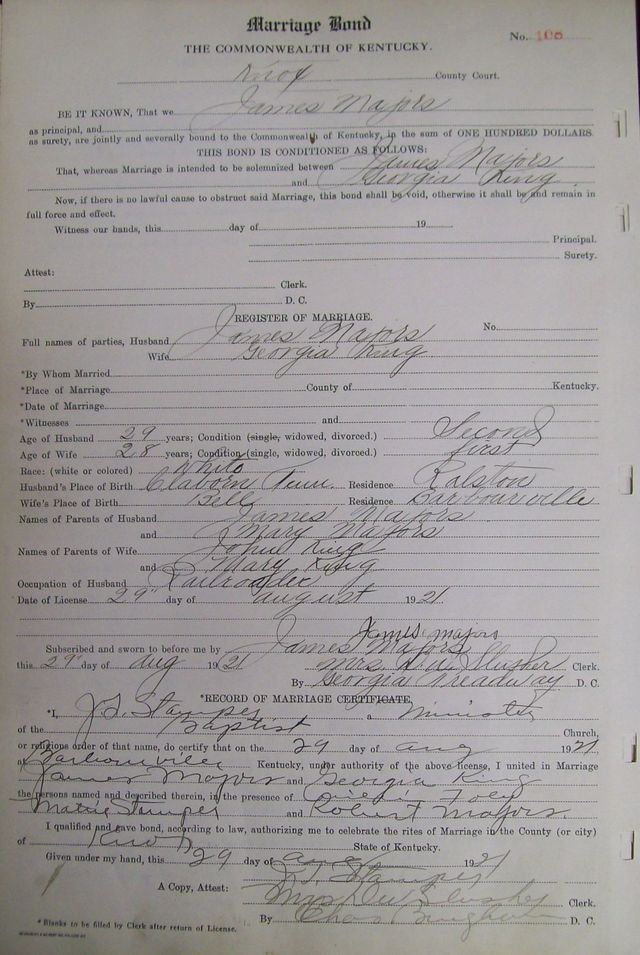 Marriage Bond
THE COMMONWEALTH OF KENTUCKY.
No. 108
Knox County Court.
BE IT KNOWN, That we James Majors
as principal, and
as surety, are jointly and severally bound to the Commonwealth of Kentucky, in the sum of ONE HUNDRED DOLLARS.
THIS BOND IS CONDITIONED AS FOLLOWS:
That, whereas Marriage is intended to be solemnized between James Majors
and Georgia King
Now, if there is no lawful cause to obstruct said Marriage, this bond shall be void, otherwise it shall be and remain in
full force and effect.
Witness our hands, this day of 19
Principal.
Surety.
Attest:
Clerk.
By D. C.
REGISTER OF MARRIAGE.
Full names of parties, Husband James Majors No.
Wife Georgia King
*By Whom Married
*Place of Marriage County of Kentucky.
*Date of Marriage
*Witnesses and
Age of Husband 29 years; Condition (single, widowed, divorced.) Second
Age of Wife 28 years; Condition (single, widowed, divorced.) first
Race: (white or colored) White
Husband's Place of Birth Claborn Tenn. Residence Ralston
Wife's Place of Birth Bell Residence Barbourville
Names of Parents of Husband James Majors
and Mary Majors
Names of Parents of Wife John King
and Mary King
Occupation of Husband Railroader
Date of License 29" day of august 1921
James majors
Subscribed and sworn to before me by James Majors
this 29" day of Aug 1921 Mrs. D.W. Slusher Clerk.
By Georgia Treadway D. C.
*RECORD OF MARRIAGE CERTIFICATE.
*I, J.T. Stamper a Minister
of the Baptist Church,
or religious order of that name, do certify that on the 29 day of aug 1921
at Barbourville Kentucky, under authority of the above license, I united in Marriage
James Majors and Georgia King
the persons named and described therein, in the presence of Foley
Mattie Stamper and Robert Majors.
I qualified and gave bond, according to law, authorizing me to celebrate the rites of Marriage in the County (or city)
of Knox State of Kentucky.
Given under my hand, this 29 day of aug 1921
J.T. Stamper
A Copy, Attest: Mrs. D.W. Slusher Clerk.
By Chas Bingham D. C.
*Blanks to be filled by Clerk after return of License.